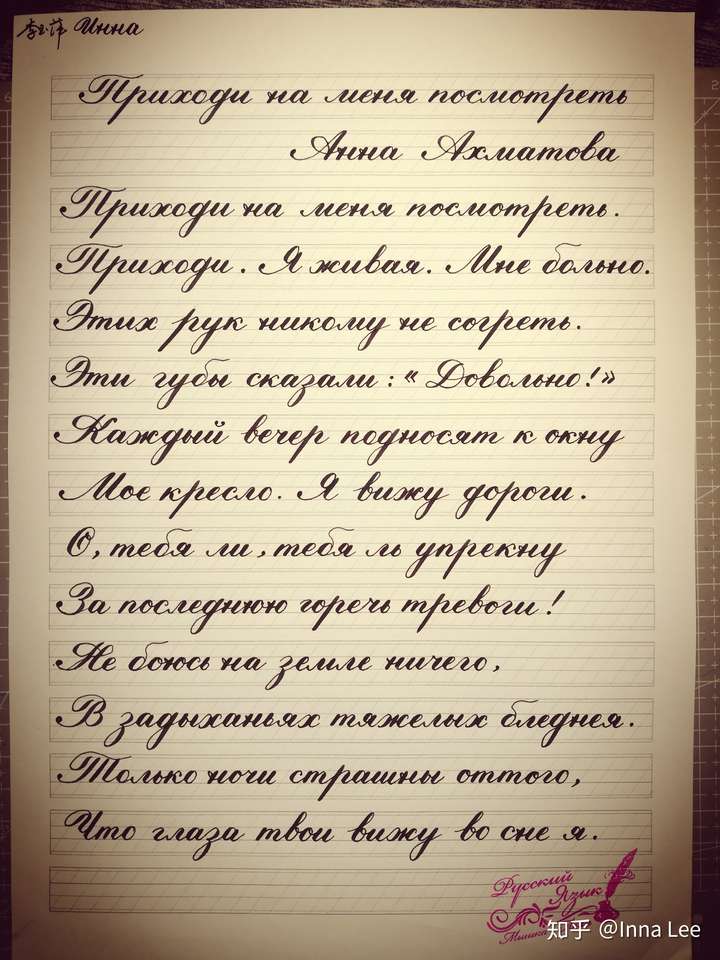 李玉萍 Инна
Приходи на меня посмотреть
Анна Ахматова
Приходи на меня посмотреть.
Приходи. Я живая. Мне больно.
Этих рук никому не согреть.
Эти губы сказали: «Довольно!»
Каждый вечер подносят к окну
Мое кресло. Я вижу дороги.
О, тебя ли, тебя ль упрекну
За последнюю горечь тревоги!
Не боюсь на земле ничего,
В задыханьях тяжелых бледнея.
Только ночи страшны оттого,
Что глаза твои вижу во сне я.
Русский
Язык
知乎 @Inna Lee